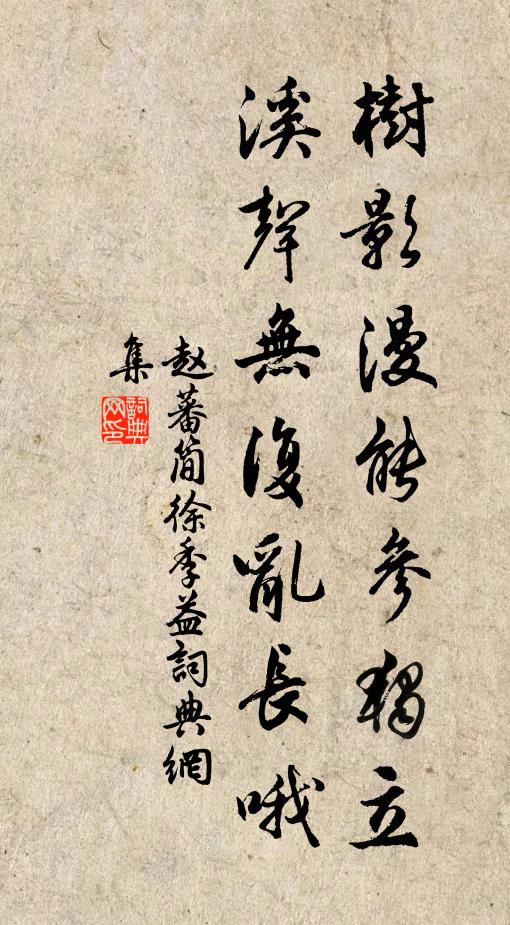 樹影漫能參獨立
溪聲無復亂長哦
赵蕃简徐季益詞典網
集
詞典網印